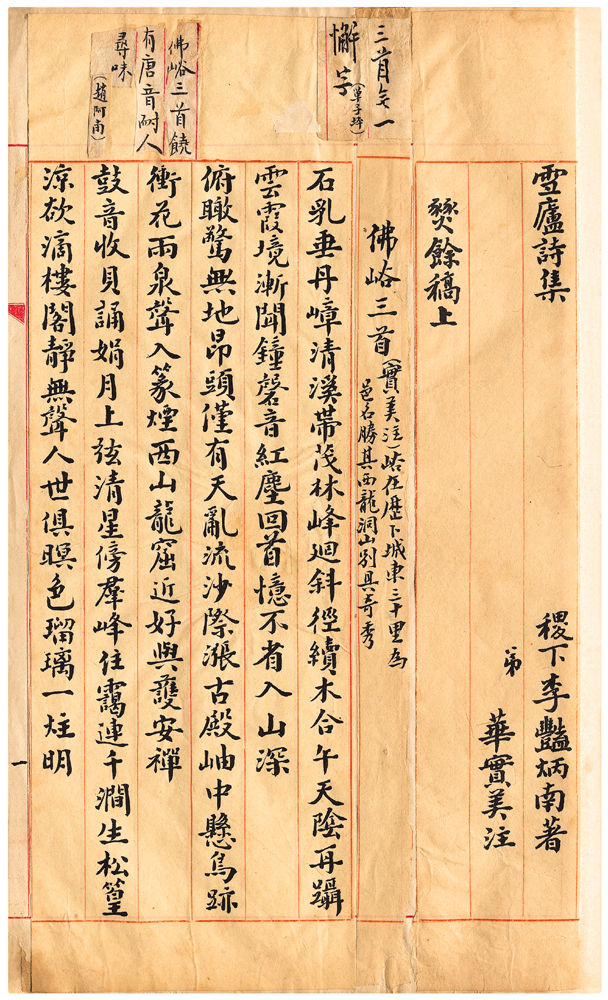 三首无一
懈字
佛峪三首饒
有唐音耐人
尋味(趙阿南)
雪廬詩集 稷下李豔炳南著
弟 華實美注
焚餘稿上
佛峪三首(實美注)峪在歷下城東三十里為
邑名勝其西龍洞山別具奇秀
石乳垂丹嶂清溪帶茂林峰迴斜徑續木合午天陰再躡
雲霞境漸聞鐘磬音紅塵回首憶不省入山深
俯瞰驚無地昂頭僅有天亂流沙際漲古殿岫中懸鳥跡
衝花雨泉聲入篆煙西山龍窟近好與護安禪
鼓音收貝誦娟月上弦清星傍羣峰住靄連千澗生松篁
涼欲滴樓閣靜無聲人世俱暝色瑠璃一炷明
一